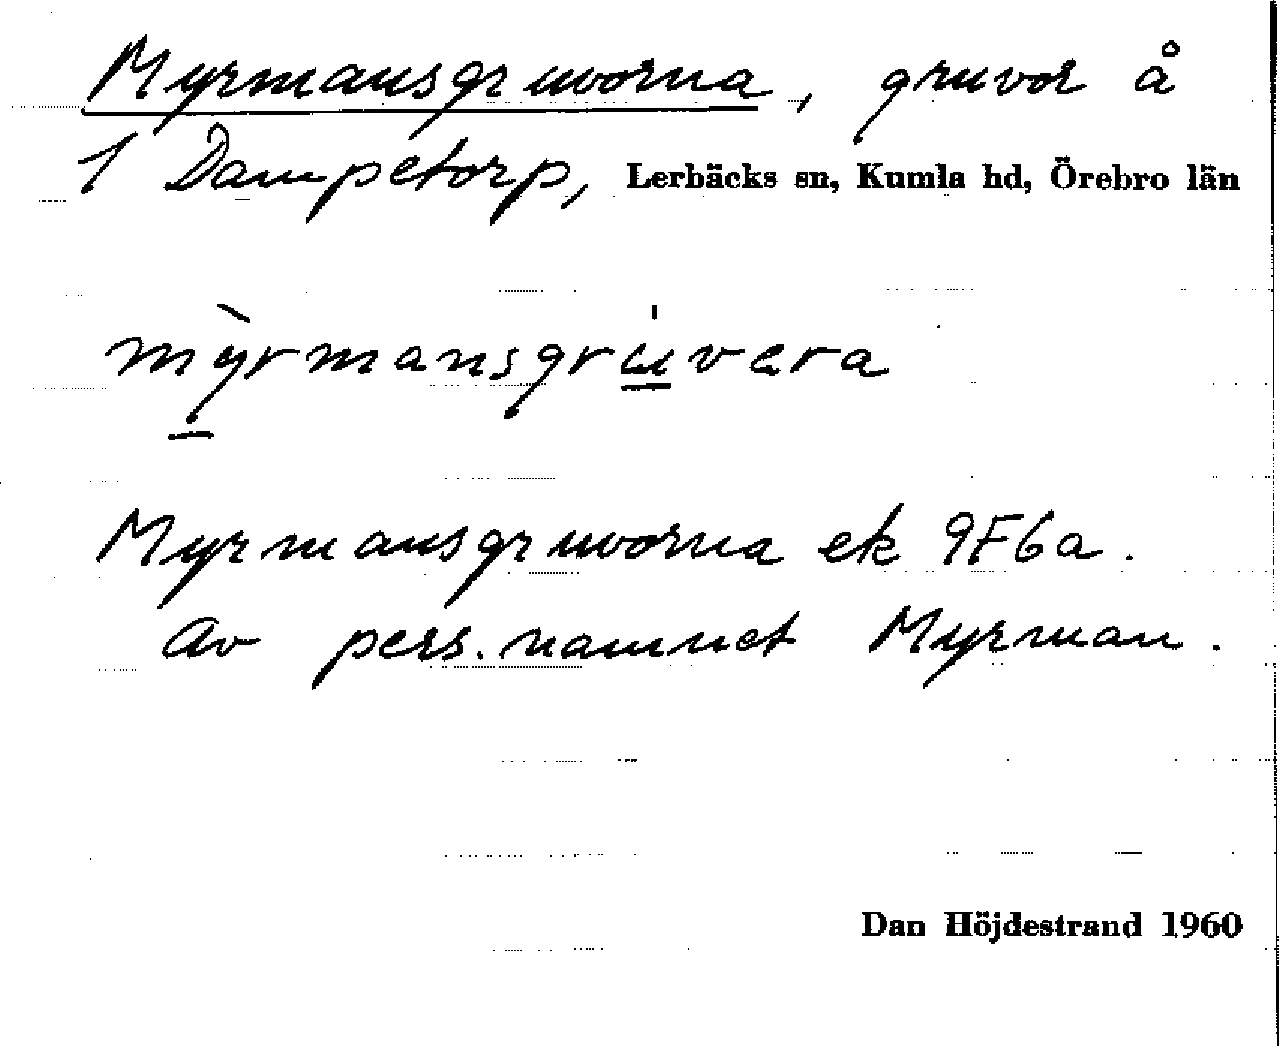 Myrmansgruvorna, gruvor å
1 Dampetorp, Lerbäcks sn, Kumla hd, Örebro län
mỳrmansgrúvera
Myrmansgruvorna ek 9F6a.
Av pers.namnet Myrman.
Dan Höjdestrand 1960